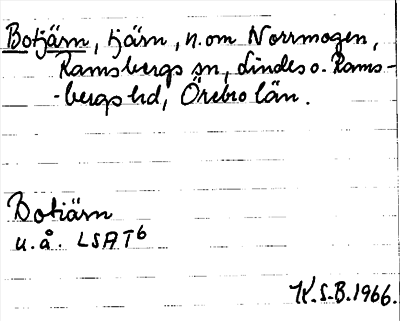 Botjärn, tjärn, n. om Norrmogen,
Ramsbergs sn, Lindes o. Rams-
-bergs hd, Örebro län.
Botiärn
u.å. LSAT6
K.S-B.1966.